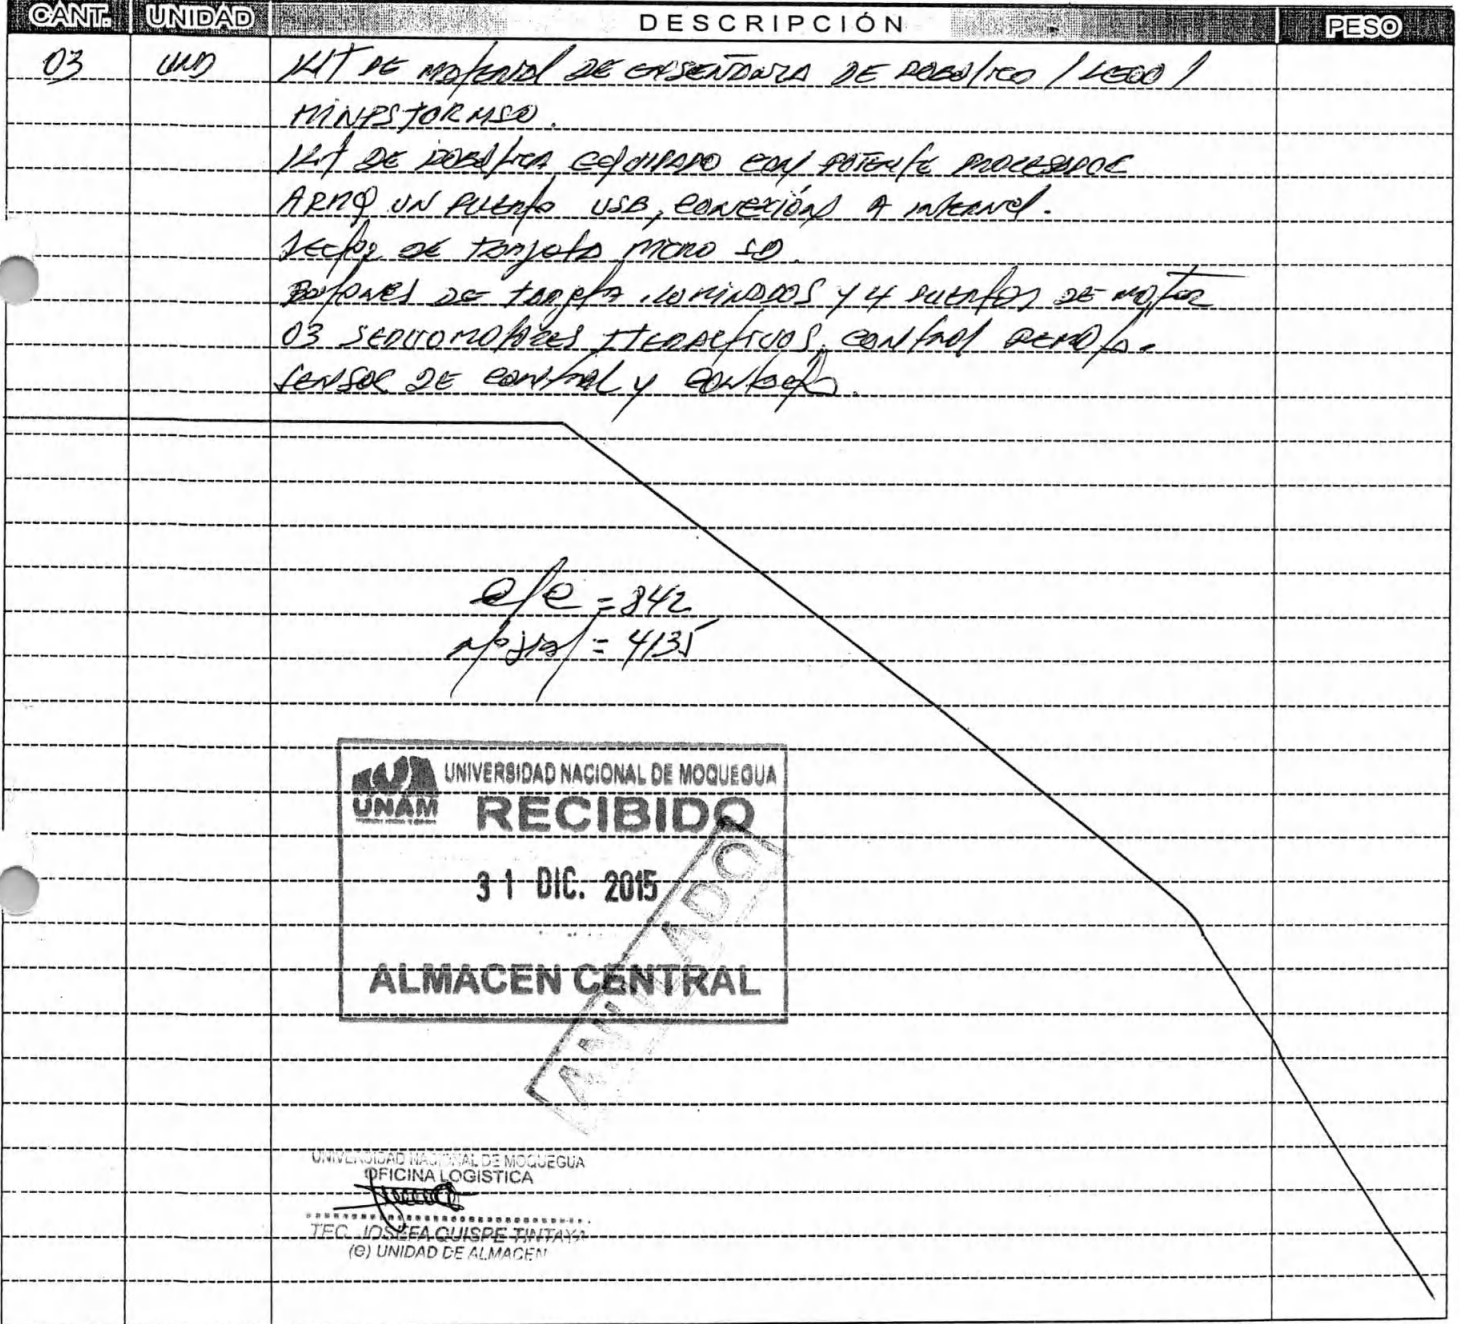 CANT. UNIDAD DESCRIPCIÓN PESO
03 UND KIT DE material DE ENSEÑANZA DE ROBOTICO / LEGO /
MINDSTORMSO.
KIT DE ROBOTICA EQUIPADO CON POTENTE PROCESADOR
ARM9 UN PUERTO USB, CONEXIÓN A INTERNET.
Lector DE TARJETA MICRO SD.
Botones DE tarjeta iluminados Y 4 puertos DE motor
03 SERVOMOTORES ITERACTIVOS, CONTROL REMOTO.
SENSOR DE control y contacto.
= 842
= 4135
UNAM UNIVERSIDAD NACIONAL DE MOQUEGUA
RECIBIDO
31 DIC. 2015
ALMACEN CENTRAL
ANULADO
UNIVERSIDAD NACIONAL DE MOQUEGUA
OFICINA LOGISTICA
TEC. JOSEFA QUISPE TINTAYA
(e) UNIDAD DE ALMACEN